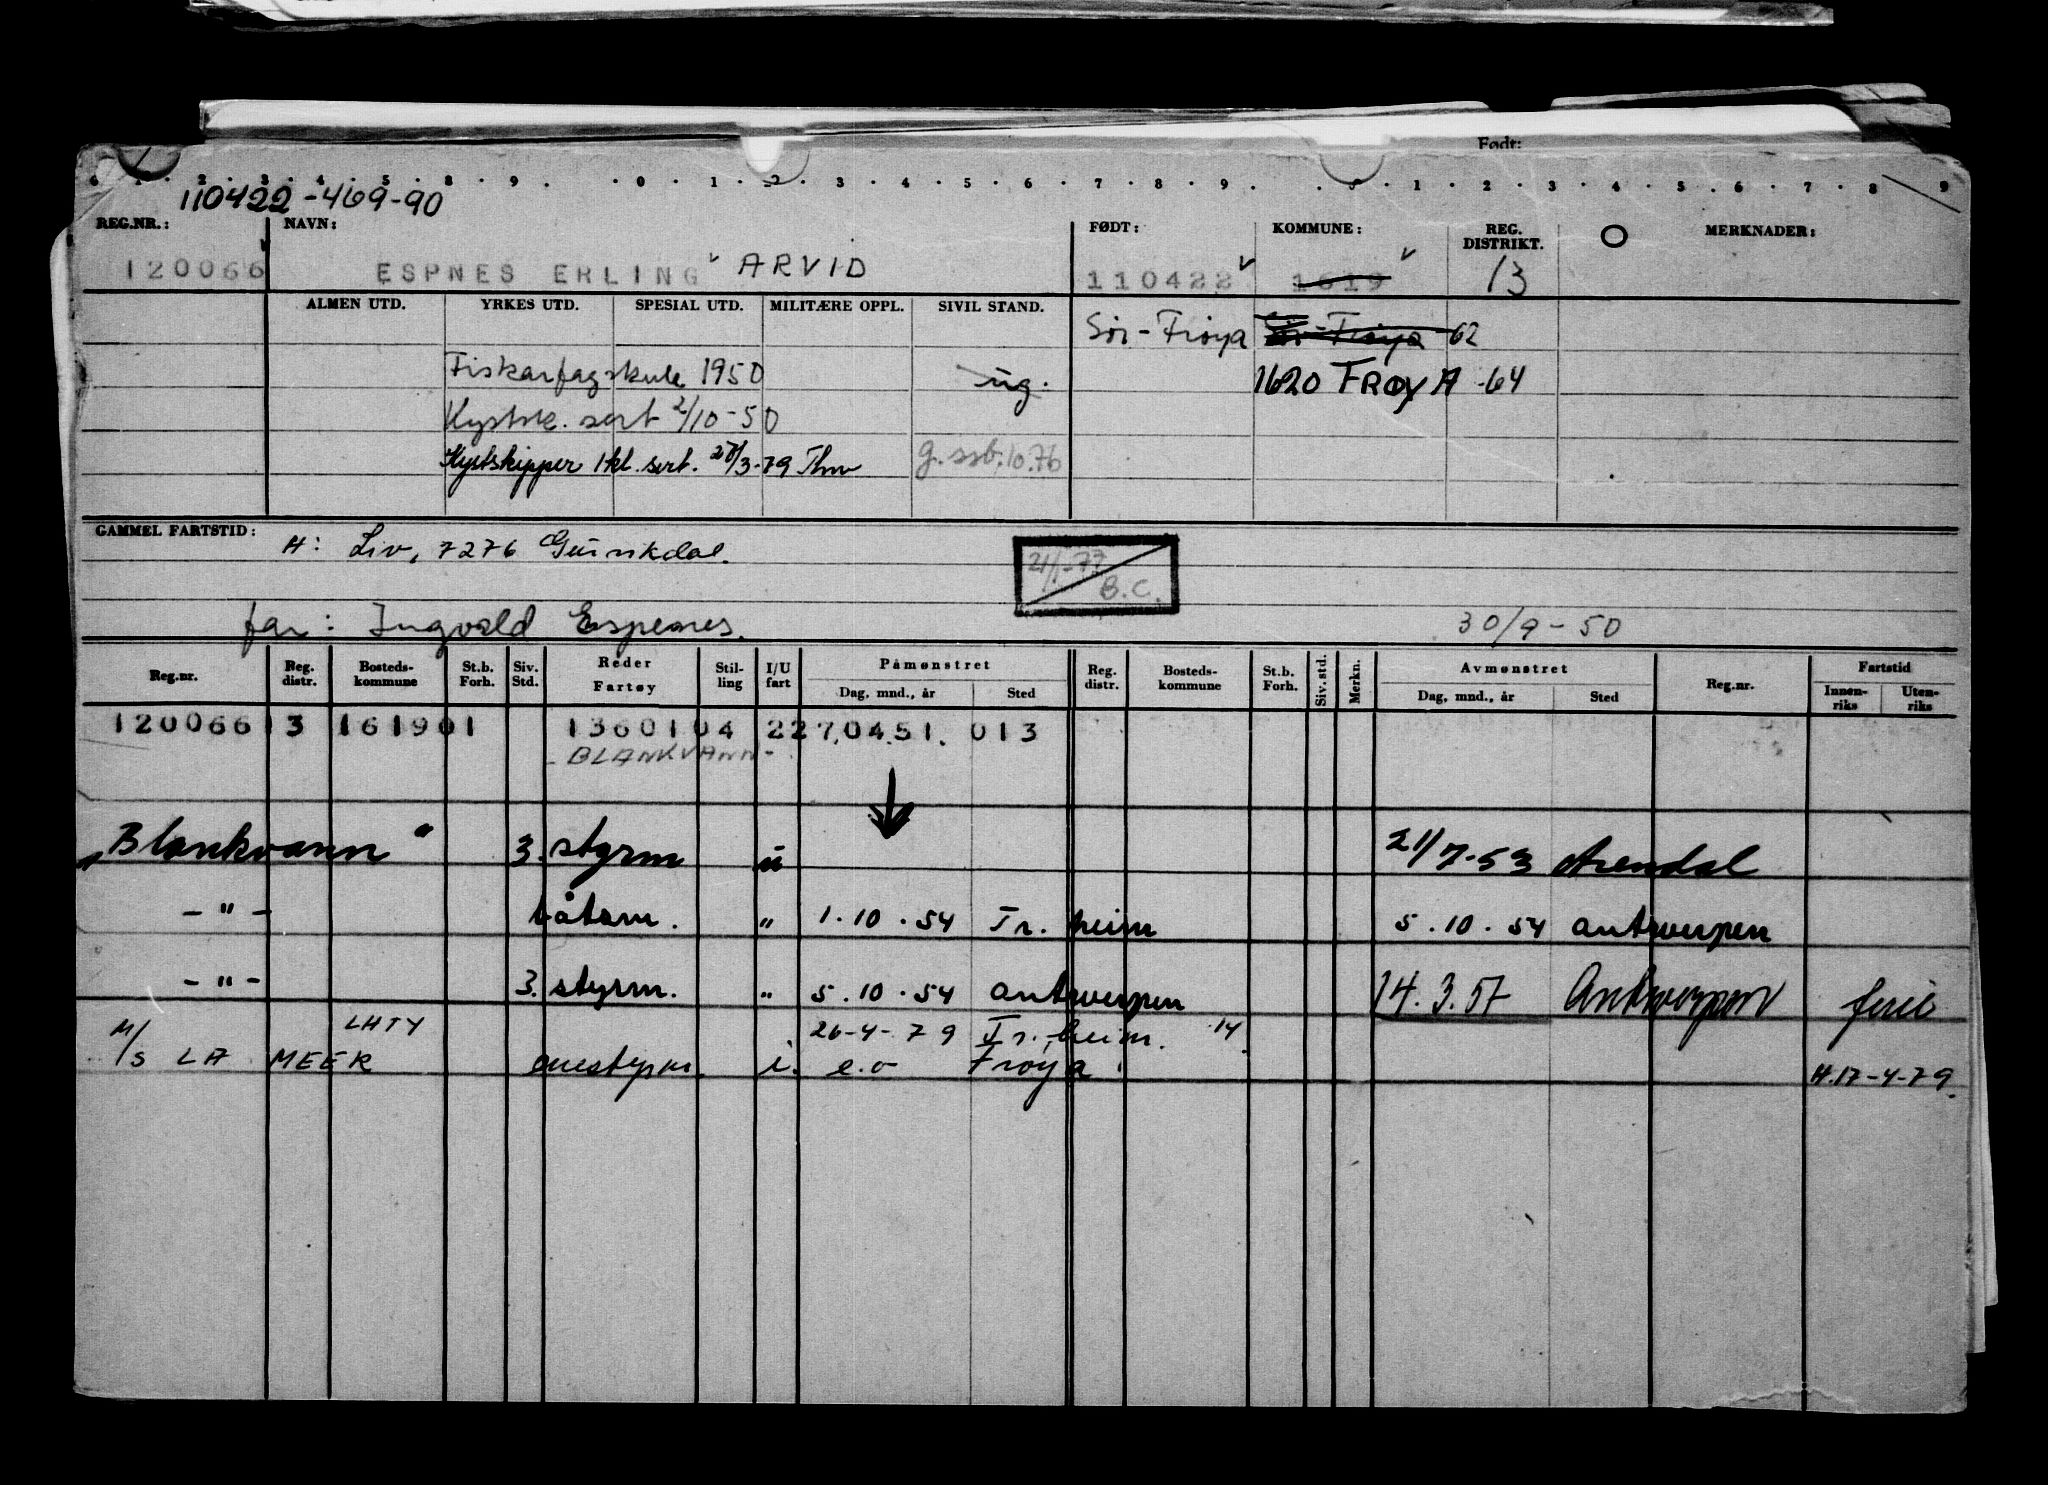 Født:
1 . 2 . 3 . 4 . 5 . 8 . 9 . . 0 . 1 . 2 . 3 . 4 . 5 . 6 . 7 . 8 . 9 . . 0 . 1 . 2 . 3 . 4 . 5 . 6 . 7 . 8 9
110422-469-90
REG.NR.: NAVN: FØDT: KOMMUNE: REG. DISTRIKT. O MERKNADER:
120066 ESPNES ERLING ARVID 110422 1619 13
ALMEN UTD. YRKES UTD. SPESIAL UTD. MILITÆRE OPPL. SIVIL STAND. Sør-Frøya Sør-Frøya 62
Fiskarfagskule 1950 ug. 1620 FRØYA -64
Kystsk. sert 2/10-50
Kystskipper 1kl. sert. 28/3-79 Thm g. ssb. 10.76
GAMMEL FARTSTID:
H: Liv, 7276
21/1-77
B.C.
far: Ingvald Espenes. 30/9-50
Reg.nr. Reg. distr. Bosteds-kommune St.b. Forh. Siv. Std. Reder Fartøy Stil-ling I/U fart Påmønstret Dag, mnd., år Sted Reg. distr. Bosteds-kommune St.b. Forh. Siv. std. Merkn. Avmønstret Dag, mnd., år Sted Reg.nr. Fartstid Innen-riks Uten-riks
120066 13 1619 01 1360104 2 27.04.51. 013
BLANKVANN-
"Blankvann" 3. styrm u 21/7-53 Arendal
-"- båtsm. " 1.10.54 Tr. heim 5.10.54 Antwerpen
-"- 3. styrm. " 5.10.54 Antwerpen 14.3.57 Antwerpen ferie
LHTY 26-4-79 Tr.heim. 14.
M/S LA MEER enestyrm. i. e.o Frøya H.17-4-79.